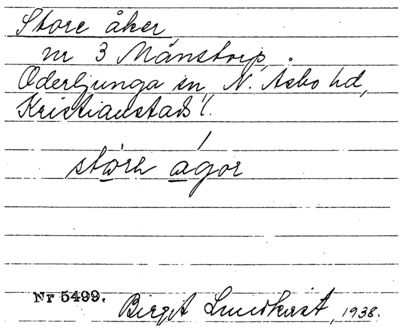 Store åker
nr 3 Månstorp,
Oderljunga sn, N. Åsbo hd,
Kristianstads l.
störe ågor
Nr 5499.
Birgit Lundkvist, 1938.